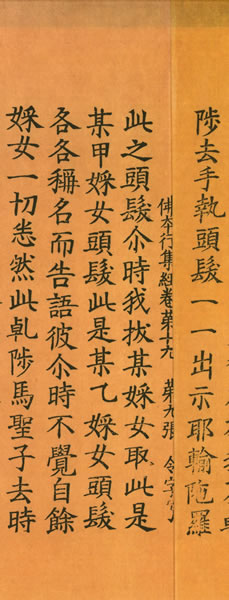 陟去手執頭髮一一出示耶輸陁羅
佛夲行集經卷第十九 第九張 令字号
此之頭髮尒時我拔某婇女取此是
某甲婇女頭髮此是某乙婇女頭髮
各各稱名而告語彼尒時不覺自餘
婇女一切悉然此乹陟馬聖子去時